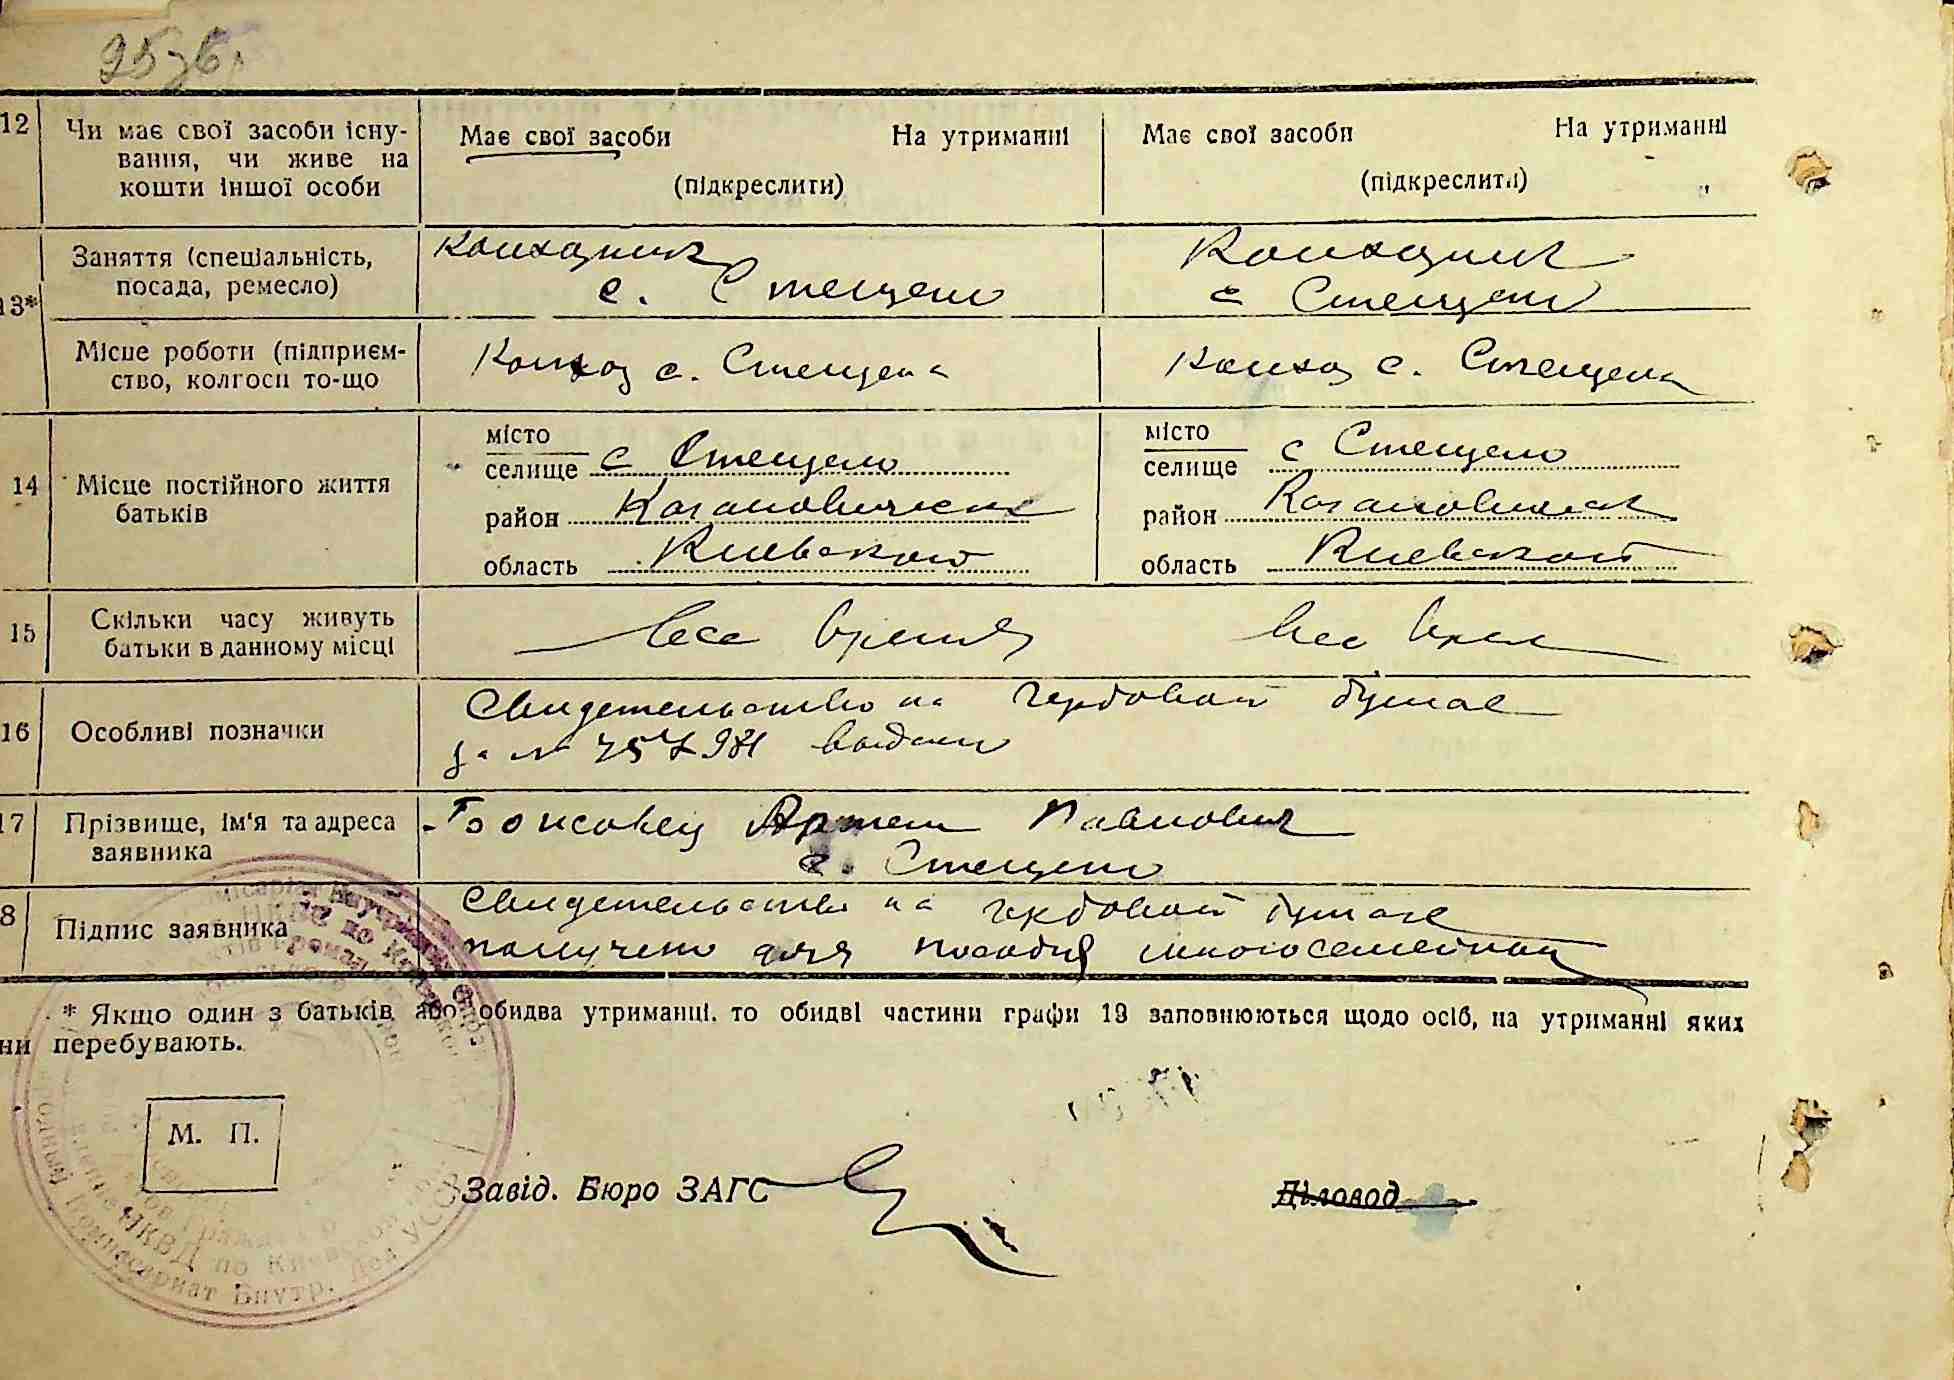 95 зб.
12 Чи має свої засоби існу- Має свої засоби На утриманні Має свої засоби На утриманні
вання, чи живе на
кошти іншої особи (підкреслити) (підкреслити)
Заняття (спеціальність, Колхозник Колхозник
посада, ремесло) с. Стещено с Стещено
13*
Місце роботи (підприєм- Колхоз с. Стещена Колхоз с. Стещена
ство, колгосп то-що
місто місто
селище с Стещено селище с Стещено
14 Місце постійного життя
батьків
район Кагановическ район Кагановическ
область Киевской область Киевской
15 Скільки часу живуть все время все врем
батьки в данному місці
Свидетельство на гербовой бумаге
16 Особливі позначки
за № 757981 выдано
17 Прізвище, ім'я та адреса Артем Павлович
заявника с. Стещено
8 Підпис заявника Свидетельство на гербовой бумаге
получено для пособия многосемейной
* Якщо один з батьків або обидва утриманці. то обидві частини графи 13 заповнюються щодо осіб, на утриманні яких
ни перебувають.
М. П.
Завід. Бюро ЗАГС Діловод
НКВД по Киевской
Комиссариат Внутр. Дел УССР